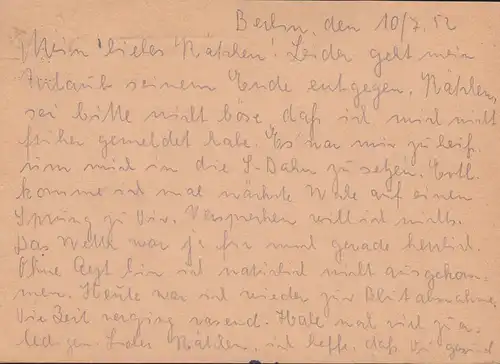 Berlin, den 10/7. 52
Mein liebes Käthchen! Leider geht mein
Urlaub seinem Ende entgegen. Käthchen,
sei bitte nicht böse daß ich mich nicht
früher gemeldet habe. Es war mir zu heiß
um mich in die S-Bahn zu setzen. Evtl.
komme ich mal nächste Woche auf einen
Sprung zu Dir. Versprechen will ich nichts.
Das Wetter war ja für mich gerade herrlich.
Ohne Arzt bin ich natürlich nicht ausgekom-
men. Heute war ich wieder zur Blutabnahme.
Die Zeit verging rasend. Habe noch viel zu er-
ledigen. Liebes Käthchen, ich hoffe, daß Du gesund